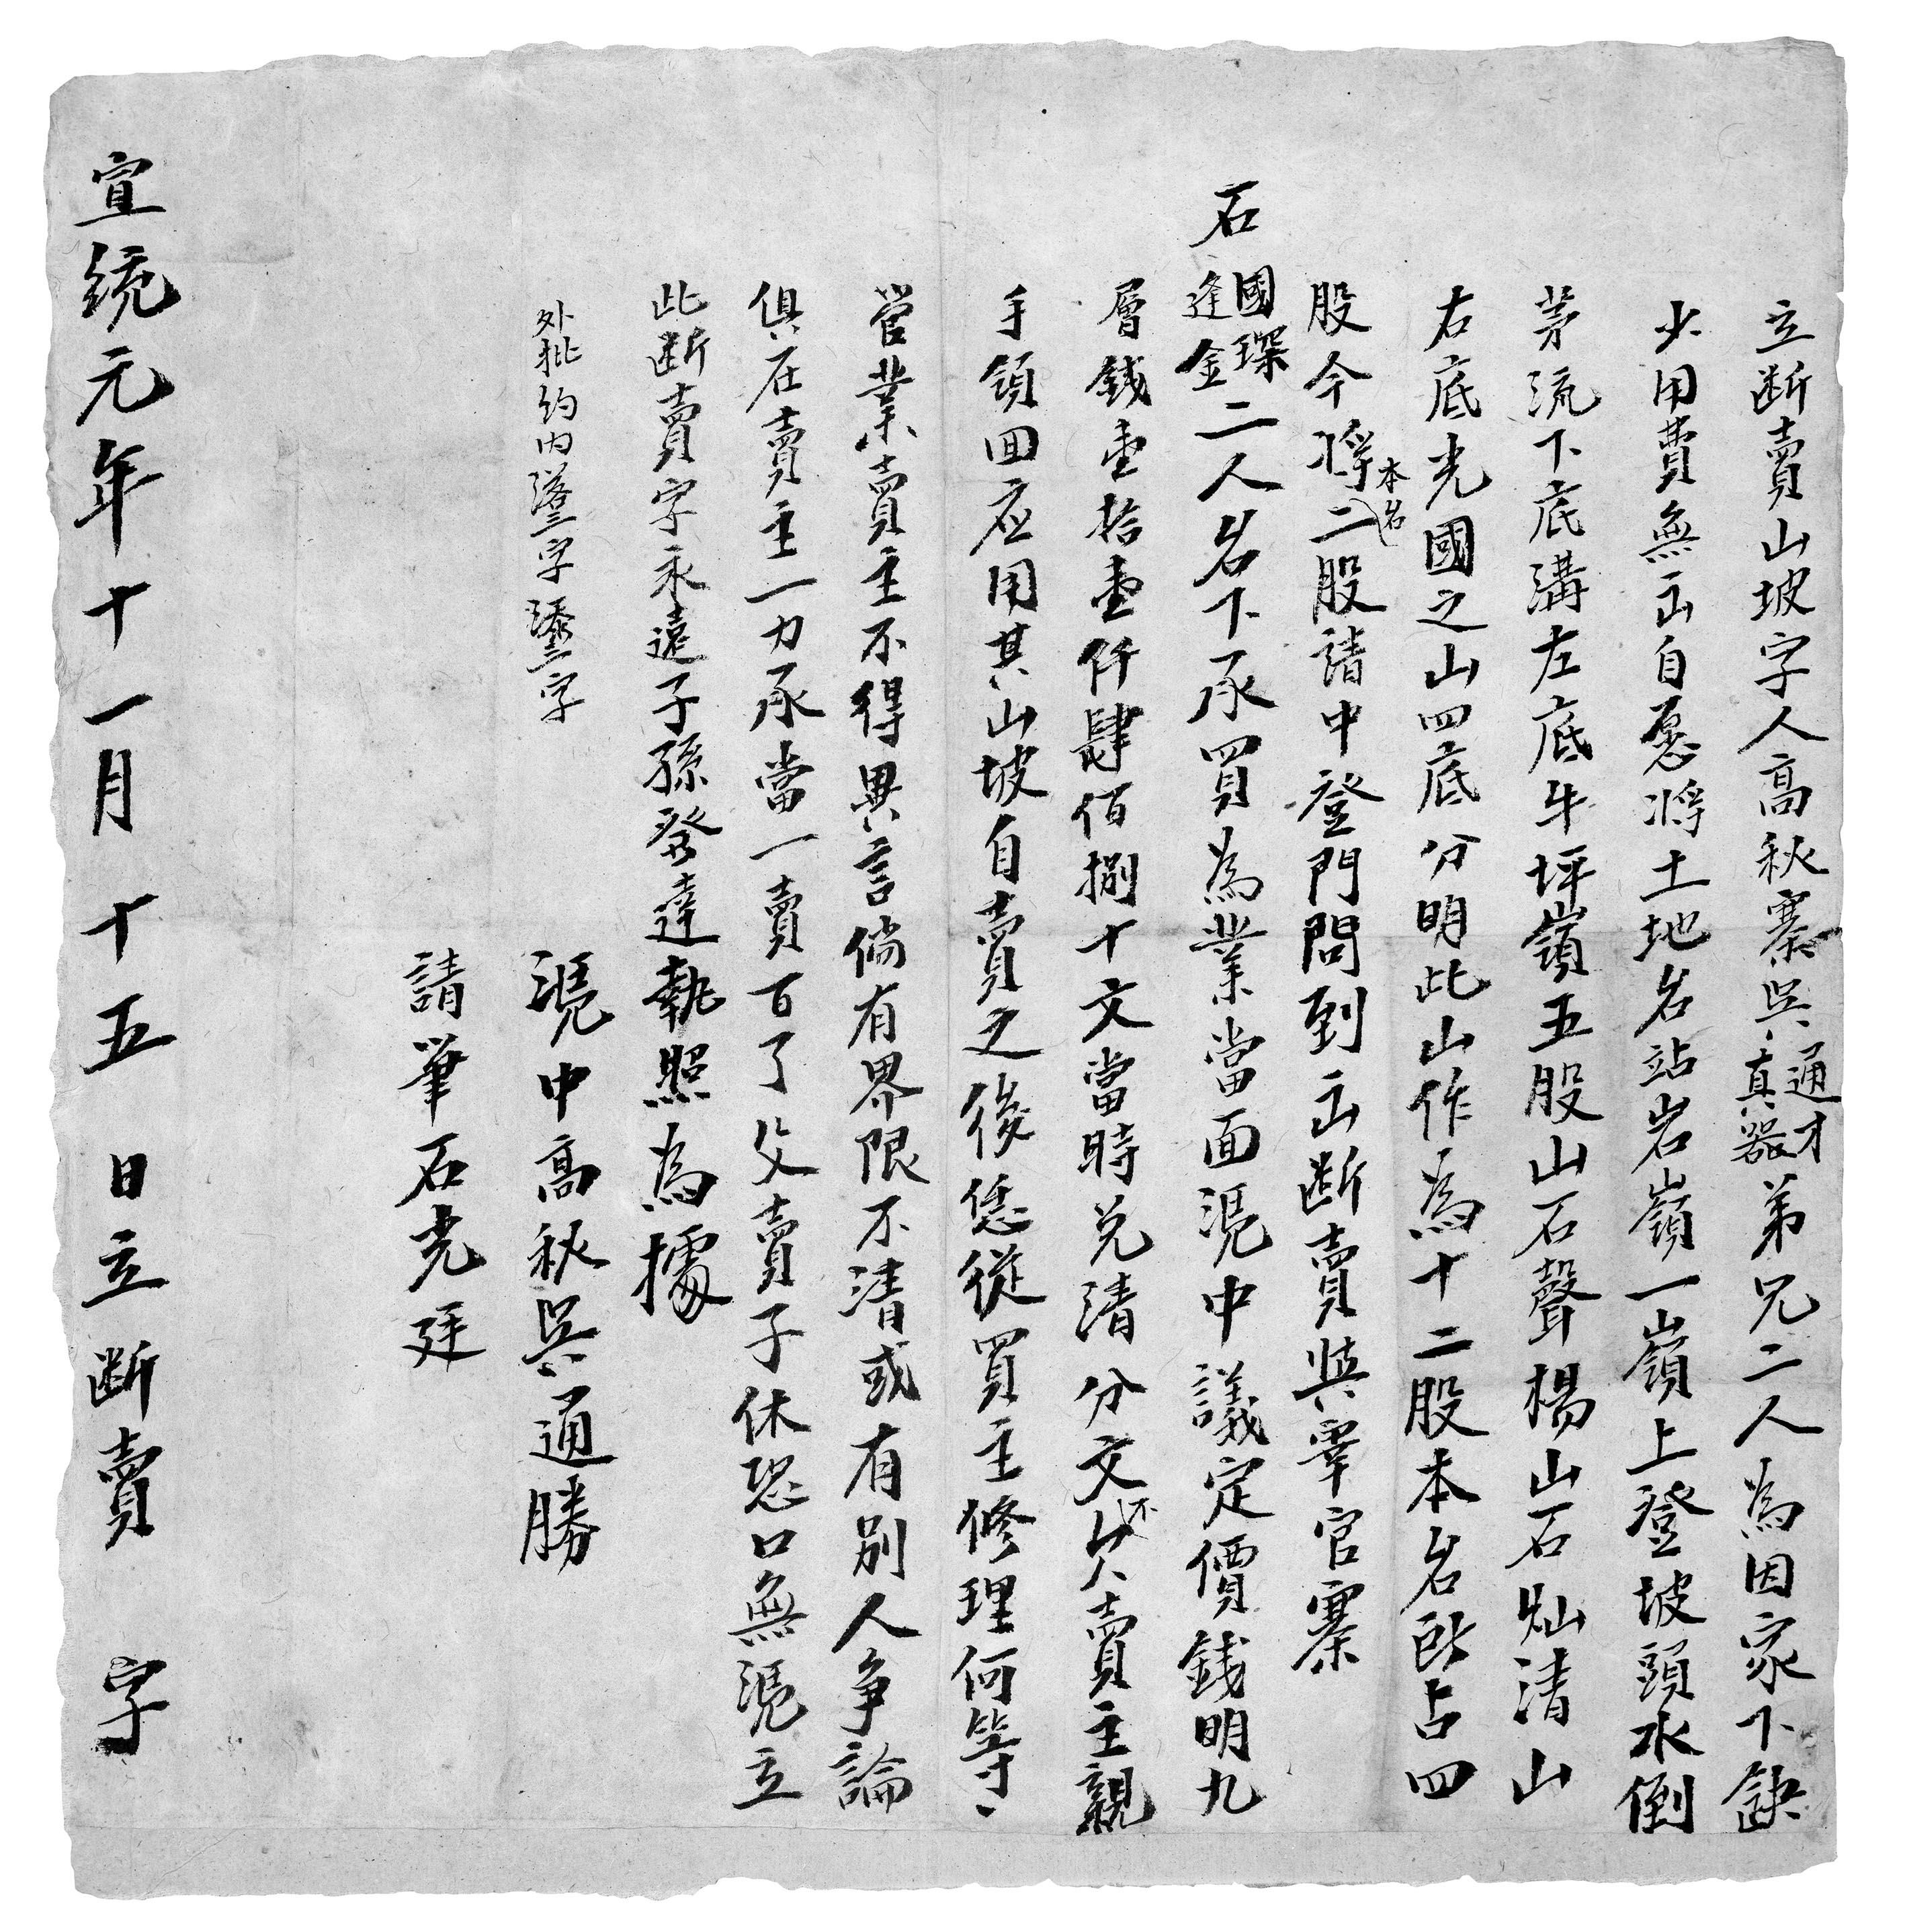 立断賣山坡字人高秋寨吳通才真器弟兄二人為因家下缺
少用費無出自愿將土地名站岩嶺一嶺上登坡頭水倒
茅流下底溝左底牛坪嶺五股山石聲楊山石灿清山
右底光國之山四底分明此山作為十二股本名所占四
股今將本名二股請中登門問到出断賣與宰官寨
石國琛逢金二人名下承買為業當面凴中議定價錢明九
層錢壹拾壹仟肆佰捌十文當時兑清分文不欠賣主親
手領回应用其山坡自賣之後恁從買主修理何等
管業賣主不得異言倘有界限不清或有別人争論
俱在賣主一力承當一賣百了父賣子休恐口無凴立
此断賣字永遠子孫發達執照為據
外批約内塗一字添三字
凴中高秋吳通勝
請筆石光廷
宣統元年十一月十五日立断賣字